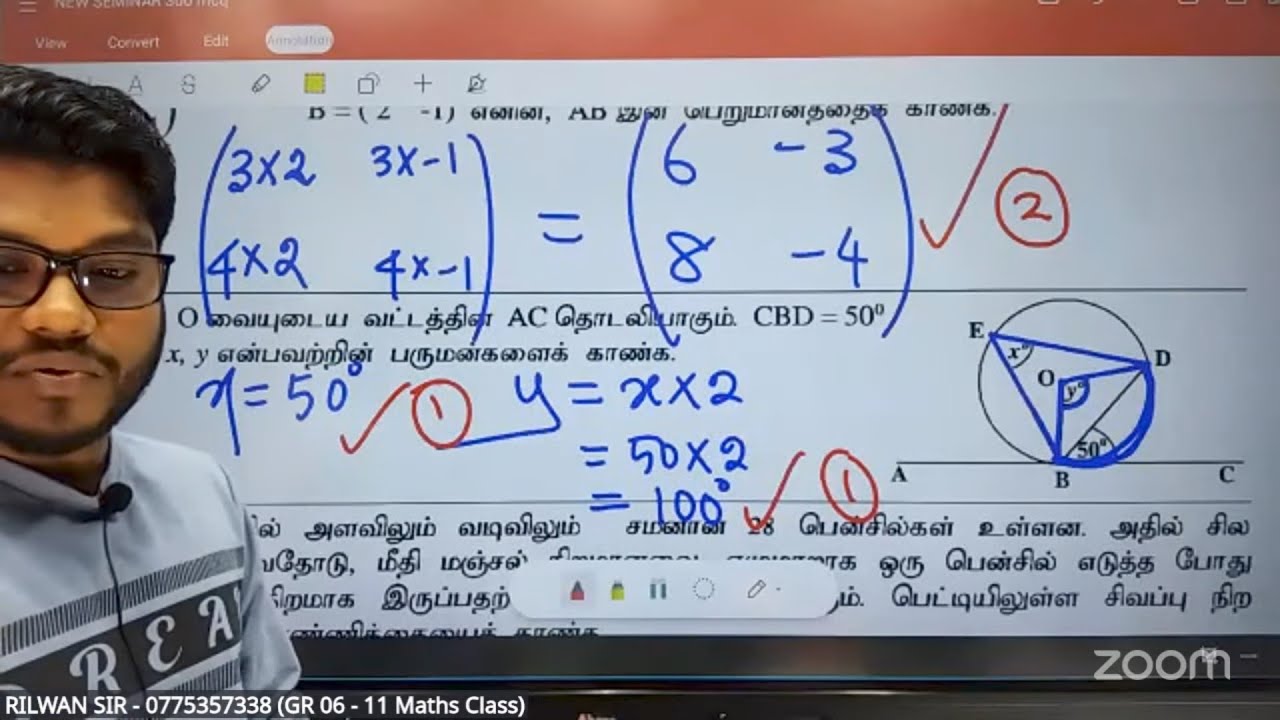 NEW SEMINAR 300 mcq
View Convert Edit Annotation
B = ( 2 -1) எனின், AB இன் பெறுமானத்தைக் காண்க.
3×2 3×-1 = 6 -3
②
4×2 4×-1 8 -4
O வையுடைய வட்டத்தின் AC தொடலியாகும். CBD = 50⁰
x, y என்பவற்றின் பருமன்களைக் காண்க.
x = 50° ① y = x×2
= 50×2
= 100° ①
E x° D O y° 50° A B C
அளவிலும் வடிவிலும் சமனான 28 பென்சில்கள் உள்ளன. அதில் சில
மீதி மஞ்சள் ஒரு பென்சில் எடுத்த போது
இருப்பதற் பெட்டியிலுள்ள சிவப்பு நிற
zoom
RILWAN SIR - 0775357338 (GR 06 - 11 Maths Class)